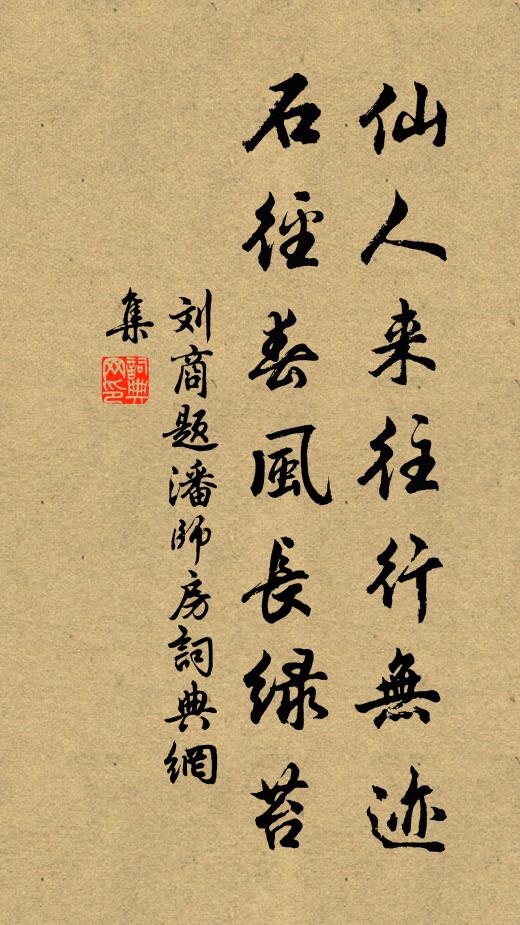 仙人来往行無迹
石徑春風長緑苔
刘商题潘師房詞典網
集
詞典网印